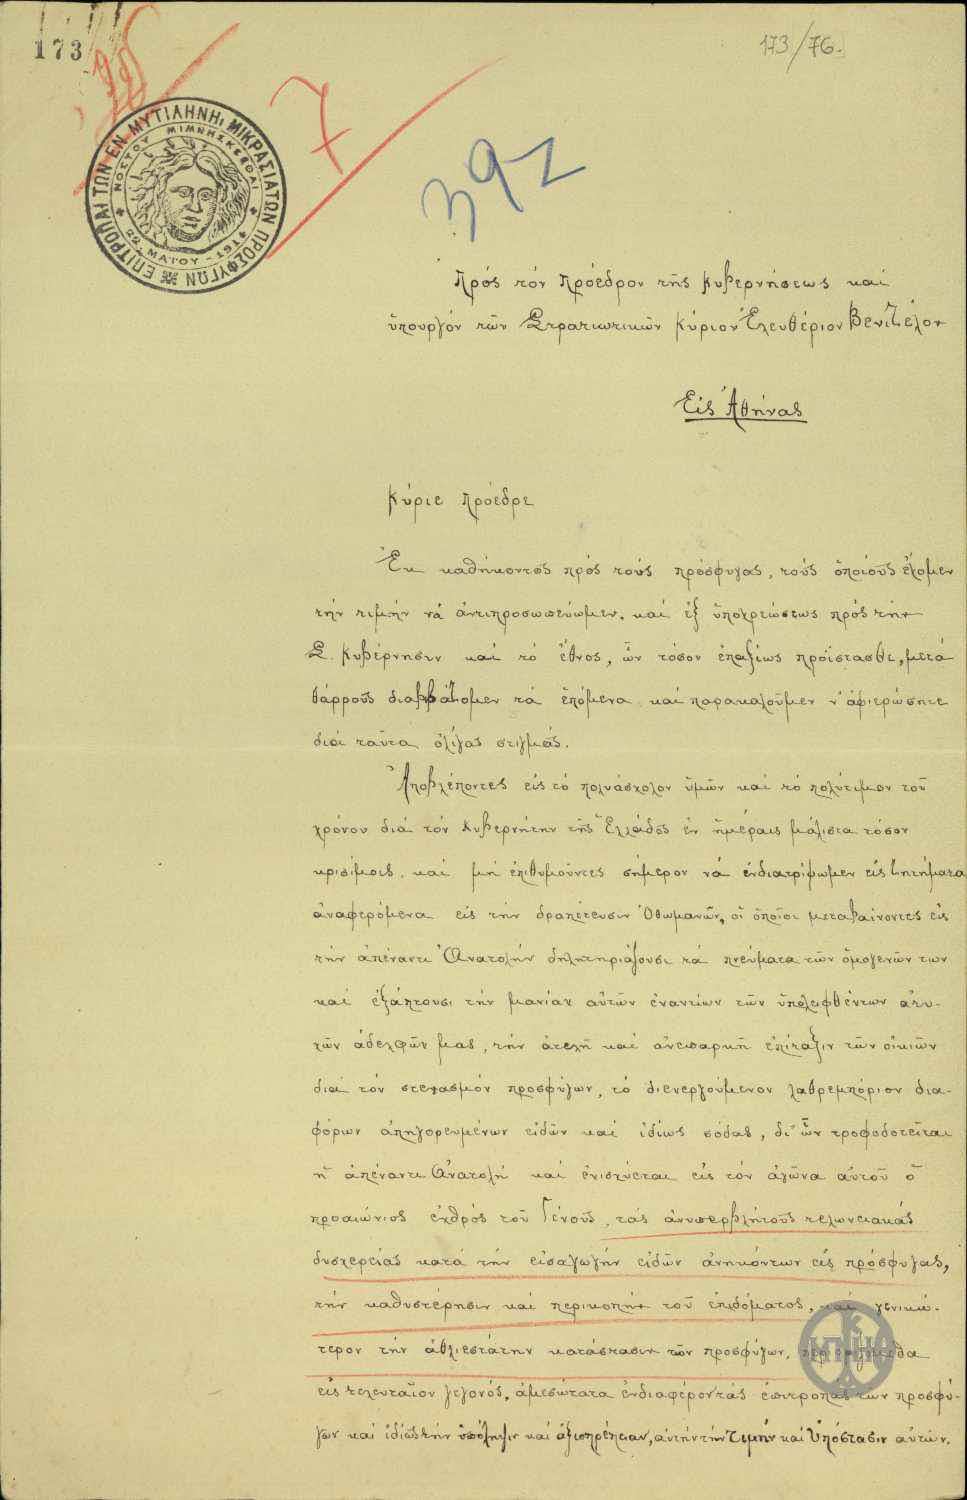 173
173/76.
7
392
ΕΠΙΤΡΟΠΑΙ ΤΩΝ ΕΝ ΜΥΤΙΛΗΝΗι ΜΙΚΡΑΣΙΑΤΩΝ ΠΡΟΣΦΥΓΩΝ
ΝΟΣΤΟΥ ΜΙΜΝΗΣΚΕΣΘΑΙ
22 ΜΑΪΟΥ - 1914
Πρός τόν Πρόεδρον τῆς Κυβερνήσεως καί
ὑπουργόν τῶν Στρατιωτικῶν Κύριον Ἐλευθέριον Βενιζέλον
Εἰς Ἀθήνας
Κύριε Πρόεδρε
Ἐκ καθήκοντος πρός τούς πρόσφυγας, τούς ὁποίους ἔχομεν
τήν τιμήν νά ἀντιπροσωπεύωμεν, καί ἐξ ὑποχρεώσεως πρός τήν
Σ. Κυβέρνησιν καί τό ἔθνος, ὧν τόσον ἐπαξίως προΐστασθε, μετά
θάρρους διαβιβάζομεν τά ἑπόμενα καί παρακαλοῦμεν ν' ἀφιερώσητε
διά ταῦτα ὀλίγας στιγμάς.
Ἀποβλέποντες εἰς τό πολυάσχολον ὑμῶν καί τό πολύτιμον τοῦ
χρόνου διά τόν Κυβερνήτην τῆς Ἑλλάδος ἐν ἡμέραις μάλιστα τόσον
κρισίμοις, καί μή ἐπιθυμοῦντες σήμερον νά ἐνδιατρίψωμεν εἰς ζητήματα
ἀναφερόμενα εἰς τήν δραπέτευσιν Ὀθωμανῶν, οἱ ὁποῖοι μεταβαίνοντες εἰς
τήν ἀπέναντι Ἀνατολήν δηλητηριάζουσι τά πνεύματα τῶν ὁμογενῶν των
καί ἐξάπτουσι τήν μανίαν αὐτῶν ἐναντίων τῶν ὑπολειφθέντων ἀτυ-
χῶν ἀδελφῶν μας, τήν ἀτελῆ καί ἀνεπαρκῆ ἐπίταξιν τῶν οἰκιῶν
διά τόν στεγασμόν προσφύγων, τό διενεργούμενον λαθρεμπόριον δια-
φόρων ἀπηγορευμένων εἰδῶν καί ἰδίως σόδας, δι' ὧν τροφοδοτεῖται
ἡ ἀπέναντι Ἀνατολή καί ἐνισχύεται εἰς τόν ἀγῶνα αὐτοῦ ὁ
προαιώνιος ἐχθρός τοῦ Γένους, τάς ἀνυπερβλήτους τελωνειακάς
δυσχερείας κατά τήν εἰσαγωγήν εἰδῶν ἀνηκόντων εἰς πρόσφυγας,
τήν καθυστέρησιν καί περικοπήν τοῦ ἐπιδόματος, καί γενικώ-
τερον τήν ἀθλιεστάτην κατάστασιν τῶν προσφύγων,
εἰς τελευταῖον γεγονός, ἀμεσώτατα ἐνδιαφέρον τάς ἐπιτροπάς των προσφύ-
γων καί ἰδίως τήν ὑπόληψιν καί ἀξιοπρέπειαν, αὐτήν τήν Τιμήν καί Ὑπόστασιν αὐτῶν.